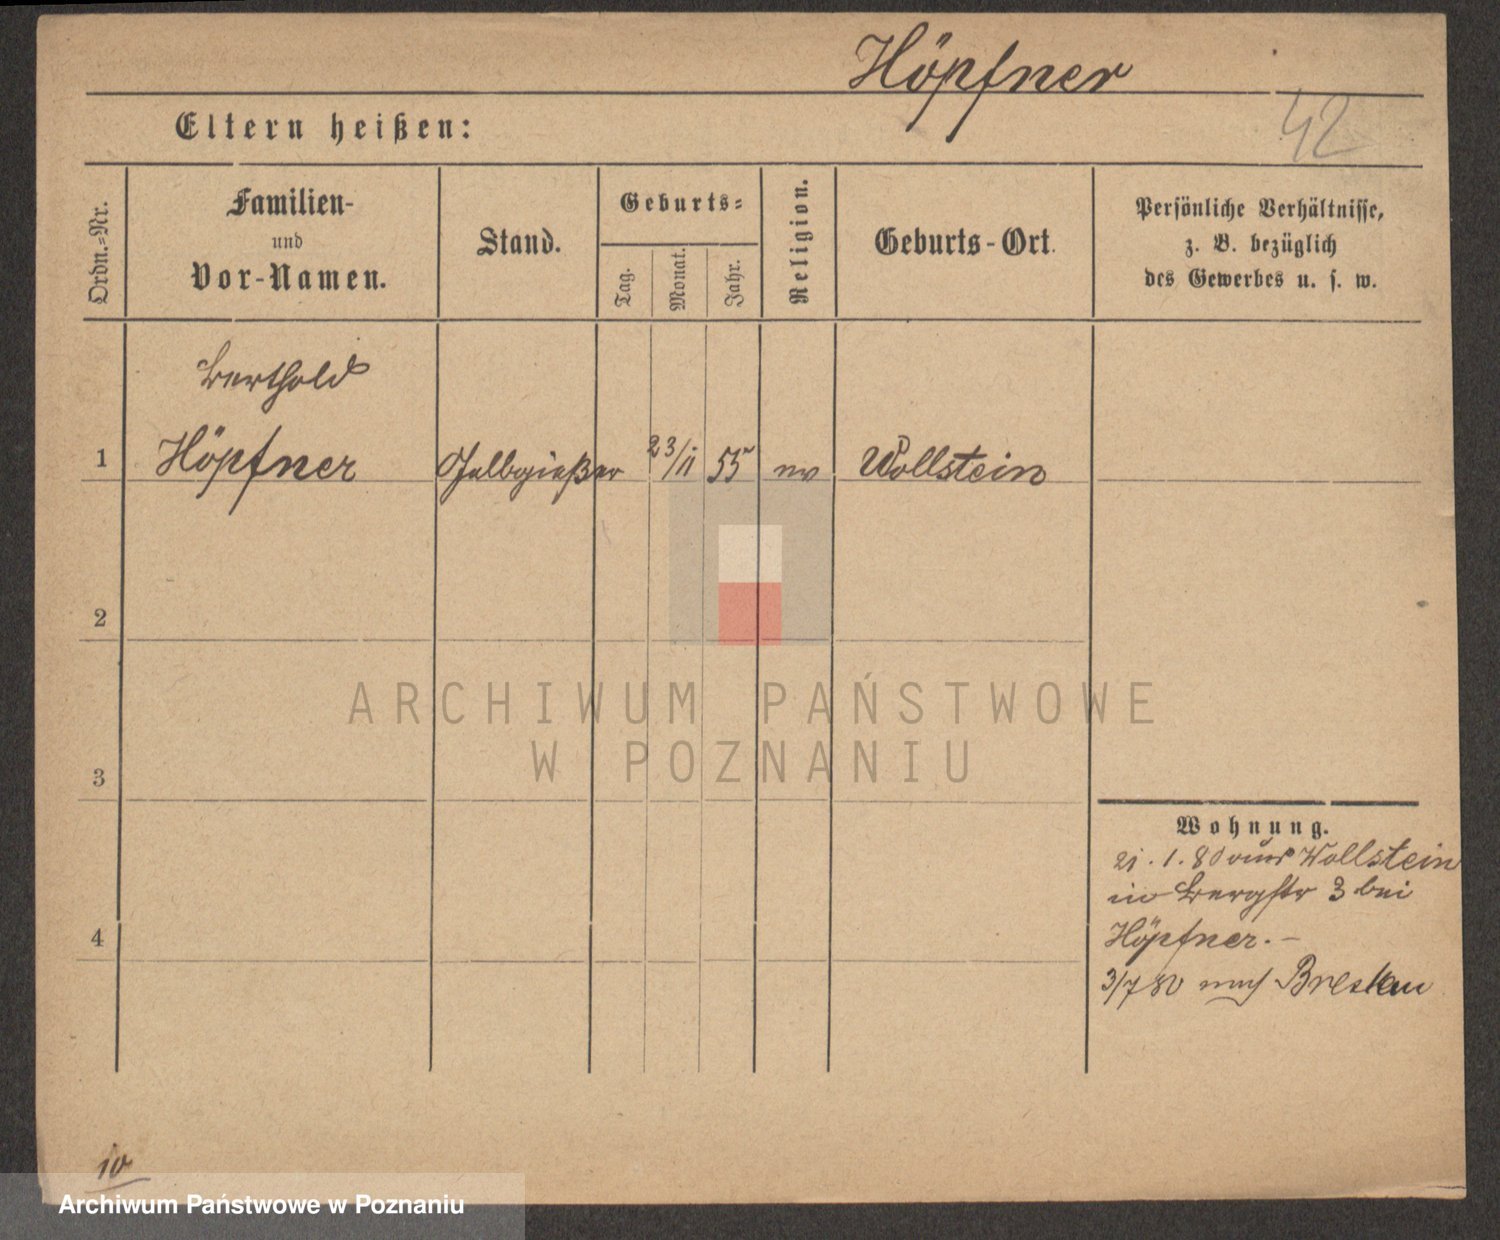 Höpfner
42
Eltern heißen:
Ordn.-Nr.
Familien-
und
Vor-Namen.
Stand.
Geburts-
Tag.
Monat.
Jahr.
Religion.
Geburts-Ort.
Persönliche Verhältnisse,
z. B. bezüglich
des Gewerbes u. s. w.
Berthold
1 Höpfner Gelbgießer 23/11 55 ev Wollstein
2
3
4
Wohnung.
21.1.80 aus Wollstein
in Bergstr 3 bei
Höpfner.-
3/7 80 nach Breslau
10
ARCHIWUM PAŃSTWOWE
W POZNANIU
Archiwum Państwowe w Poznaniu